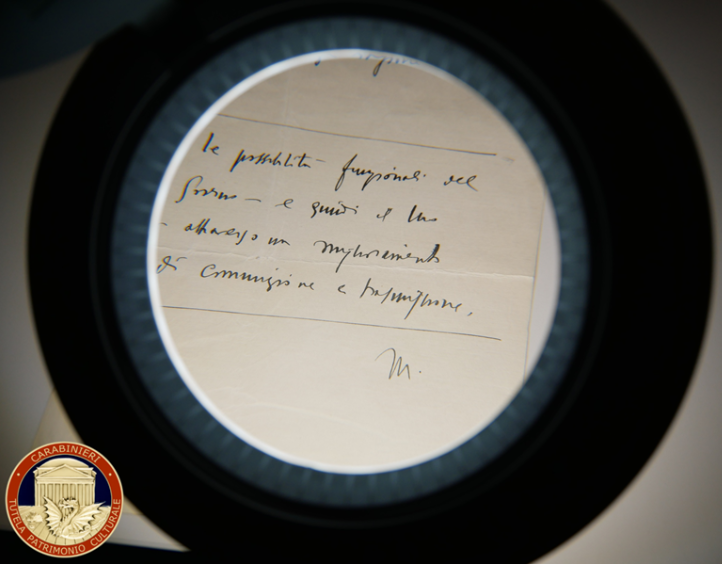 le possibilità funzionali del
Governo – e quindi il suo
– attraverso un miglioramento
di comunicazione e trasmissione.
M.
CARABINIERI
TUTELA PATRIMONIO CULTURALE